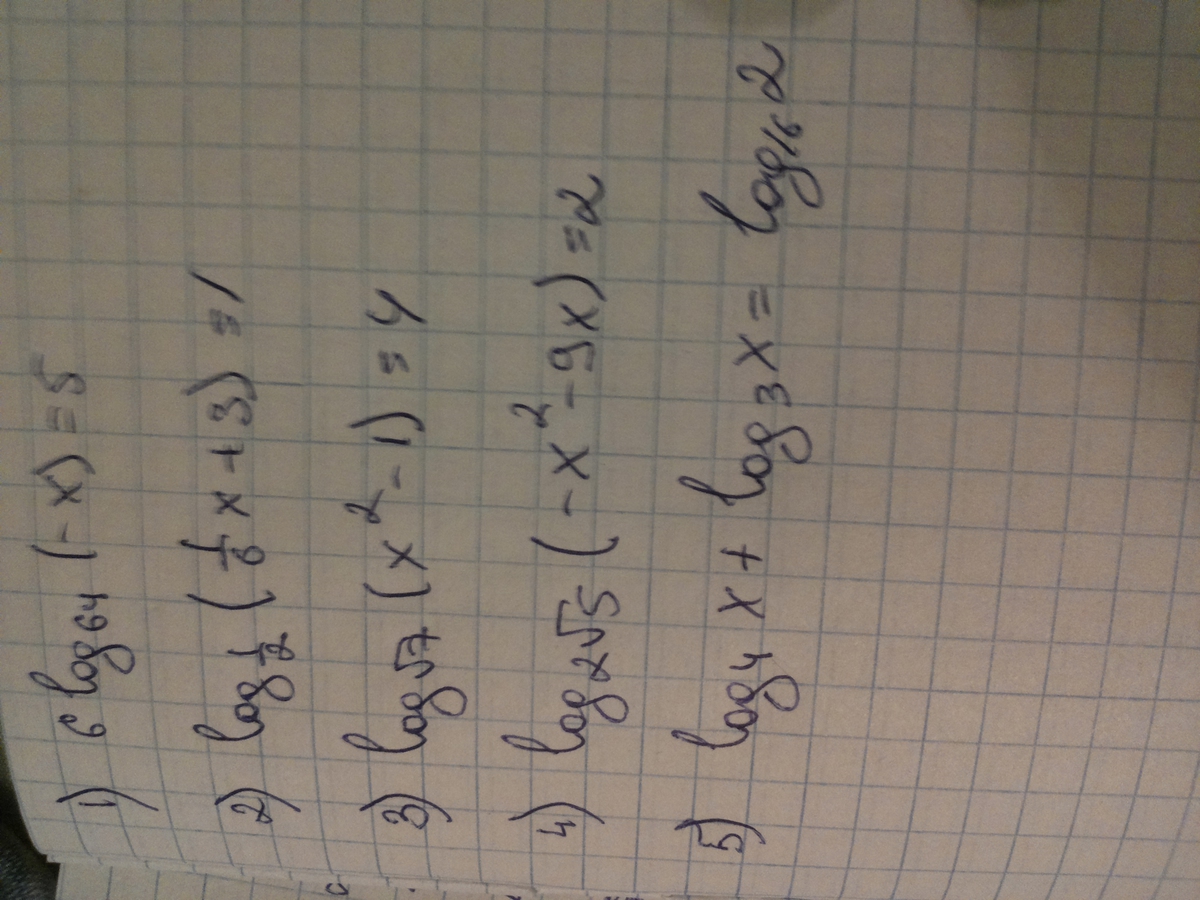 1) 6 log₆₄ (-x) = 5
2) log_{1/2} (1/6 x + 3) = 1
3) log_{√7} (x² - 1) = 4
4) log_{2√5} (-x² - 9x) = 2
5) log₄ x + log₃ x = log₁₆ 2